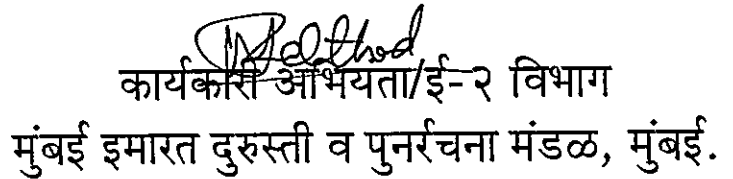 कार्यकारी अभियंता/ई-२ विभाग
मुंबई इमारत दुरुस्ती व पुनर्रचना मंडळ, मुंबई.